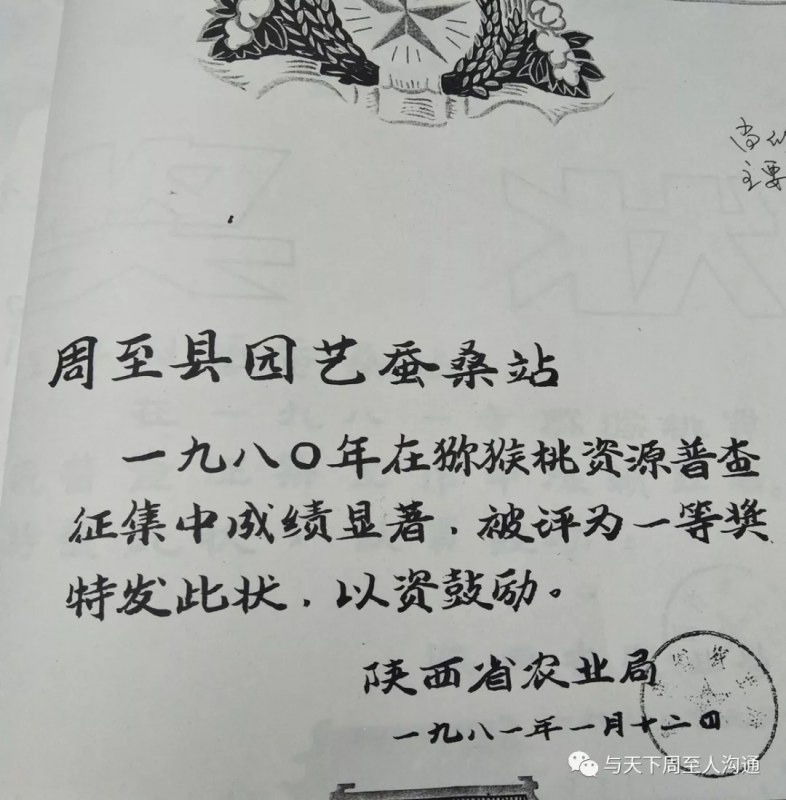 尚
主要
奖
状
周至县园艺蚕桑站
一九八〇年在猕猴桃资源普查
征集中成绩显著，被评为一等奖
特发此状，以资鼓励。
陕西省农业局
一九八一年一月十二日
与天下周至人沟通